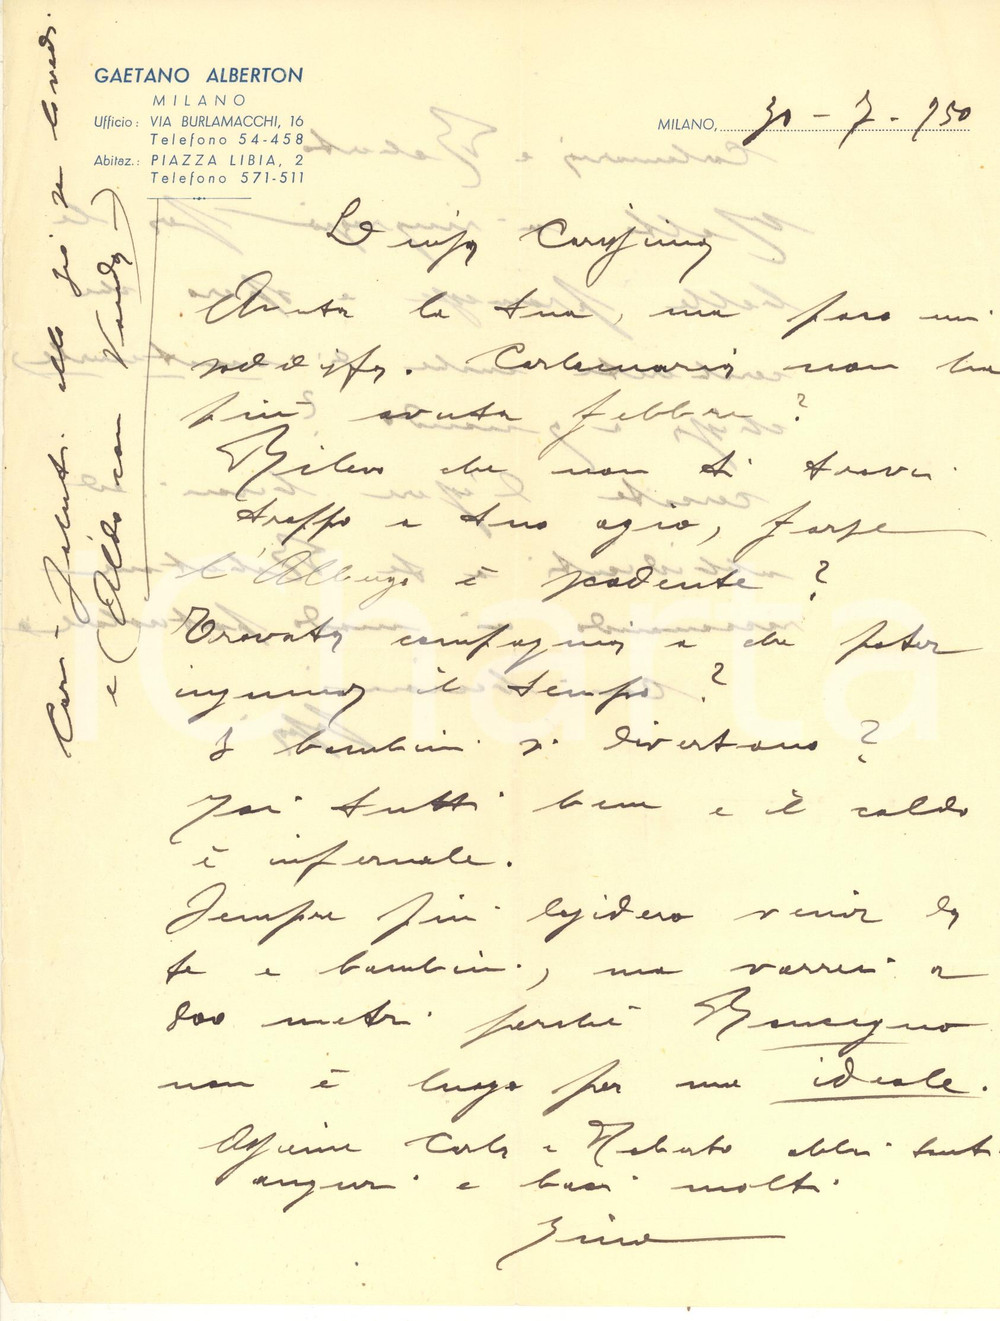 GAETANO ALBERTON
MILANO
Ufficio: VIA BURLAMACCHI, 16
Telefono 54-458
Abitaz.: PIAZZA LIBIA, 2
Telefono 571-511
MILANO, 30 - 7 - 950
Carissima
Avuta la tua, ma poco mi
soddisfa. Carlamaria non ha
più avuta febbre?
Rilevo che non ti trovi
troppo a tuo agio, forse
l'Albergo è scadente?
Trovata compagnia a che poter
ingannar il tempo?
I bambini si divertono?
Qui tutti bene e il caldo
è infernale.
Sempre più desidero venir da
te e bambini, ma vorrei a
800 metri perché
non è luogo per me ideale.
Assieme Carla e Roberto abbi tanti
auguri e baci molti.
Gino
Cari saluti allo zio se lo vedi.
e (Aldo con Vanda)
iCharta